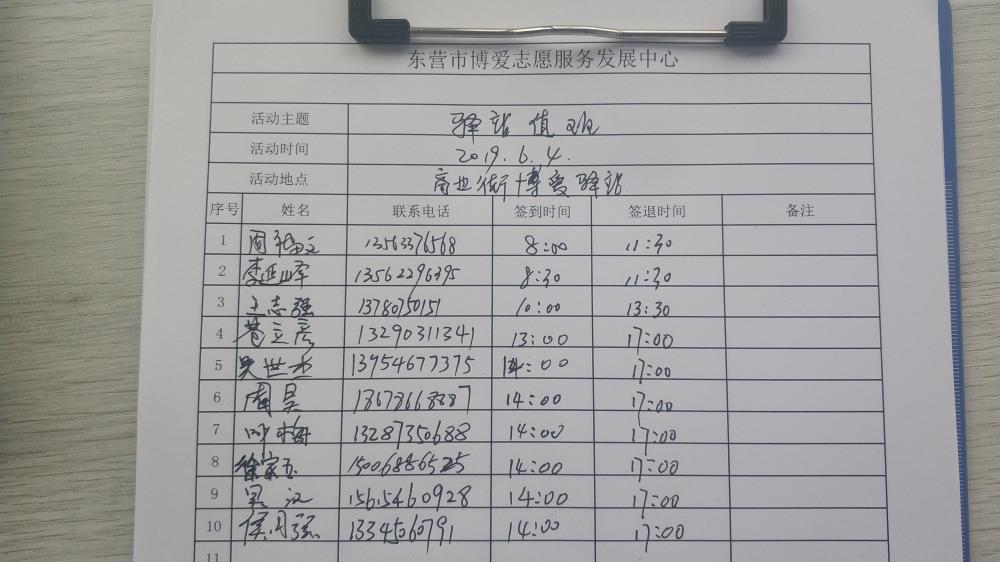 东营市博爱志愿服务发展中心
活动主题 驿站值班
活动时间 2019.6.4.
活动地点 商业街博爱驿站
序号 姓名 联系电话 签到时间 签退时间 备注
1 13563376568 8:00 11:30
2 李亚峰 13562296395 8:30 11:30
3 王志强 13780750151 10:00 13:30
4 13290311341 13:00 17:00
5 吴世杰 13954677375 14:00 17:00
6 周昊 18678668887 14:00 17:00
7 叶梅 13287350688 14:00 17:00
8 徐家玉 15006886525 14:00 17:00
9 吴汉 15615460928 14:00 17:00
10 侯月强 13345060791 14:00 17:00
11